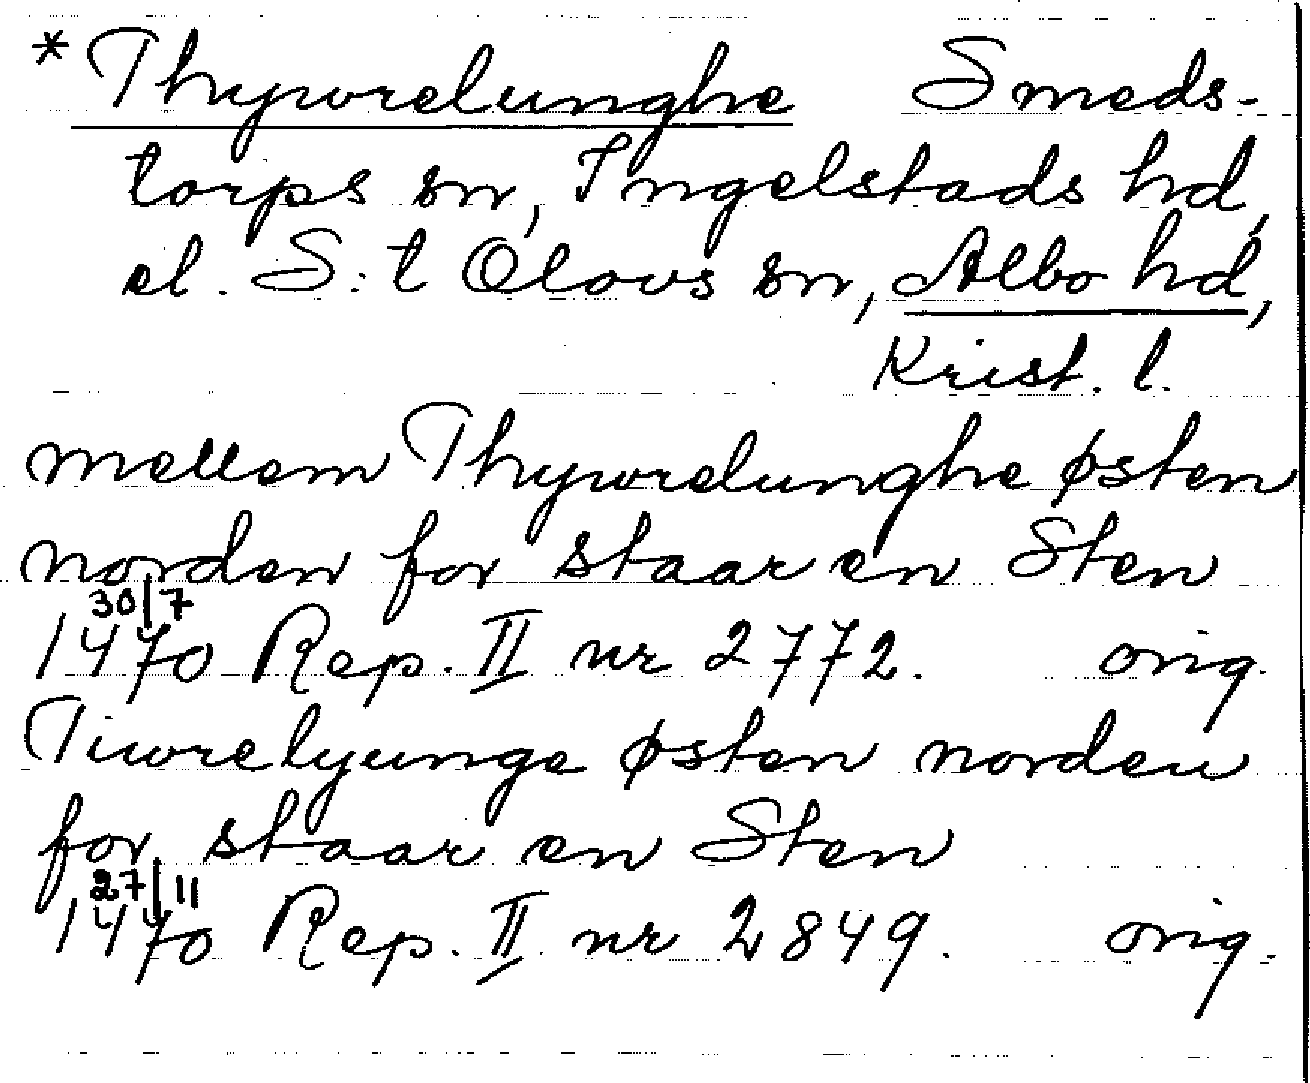 * Thyworelunghe Smeds-
torps sn, Ingelstads hd,
el. S:t Olovs sn, Albo hd,
Krist. l.
mellem Thyworelunghe østen
norden for staar en Sten
30/7
1470 Rep. II nr 2772. orig.
Tiworelyunge østen norden
for staar en Sten
27/11
1470 Rep. II nr 2849. orig.